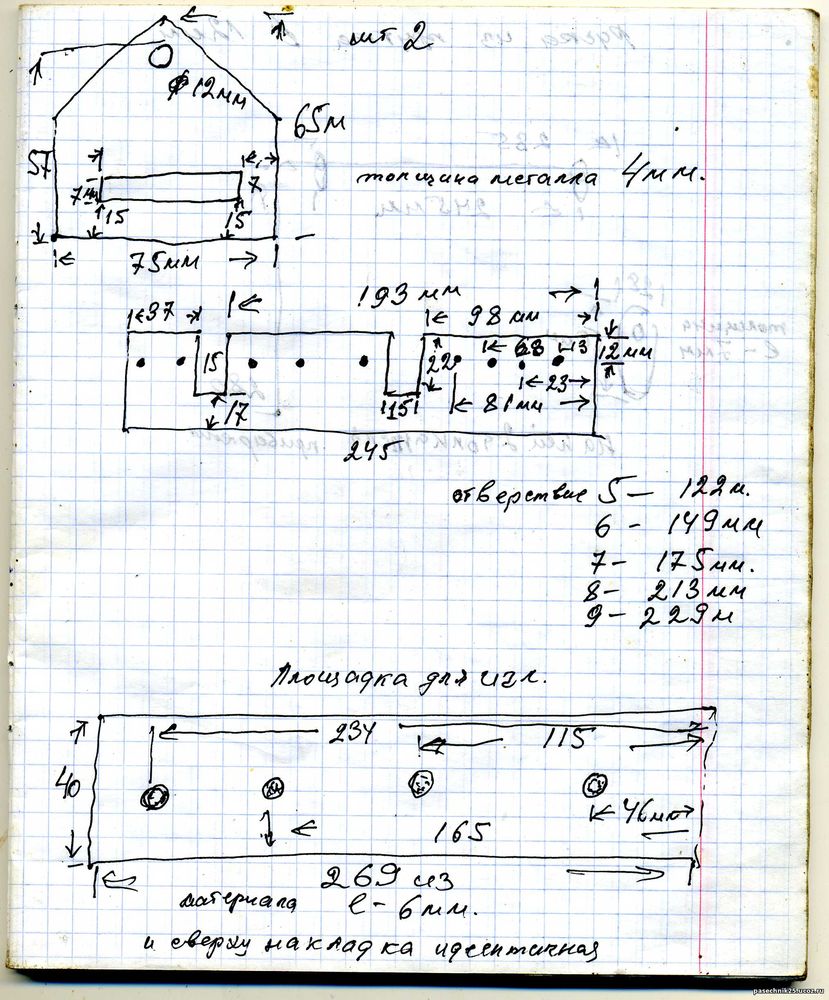 шт 2
ф 12мм
65м
57
7
7
толщина металла 4мм.
15
15
75мм
193 мм
37
98 мм
15
22
68
13
12мм
23
17
15
81мм
245
отверствие 5 – 122м.
6 - 149мм
7 – 175мм.
8 – 213мм
9 – 229м
Площадка для
234
115
40
46мм
165
269 из
материала е - 6мм.
и сверху накладка идентичная
pasechnik25.ucoz.ru